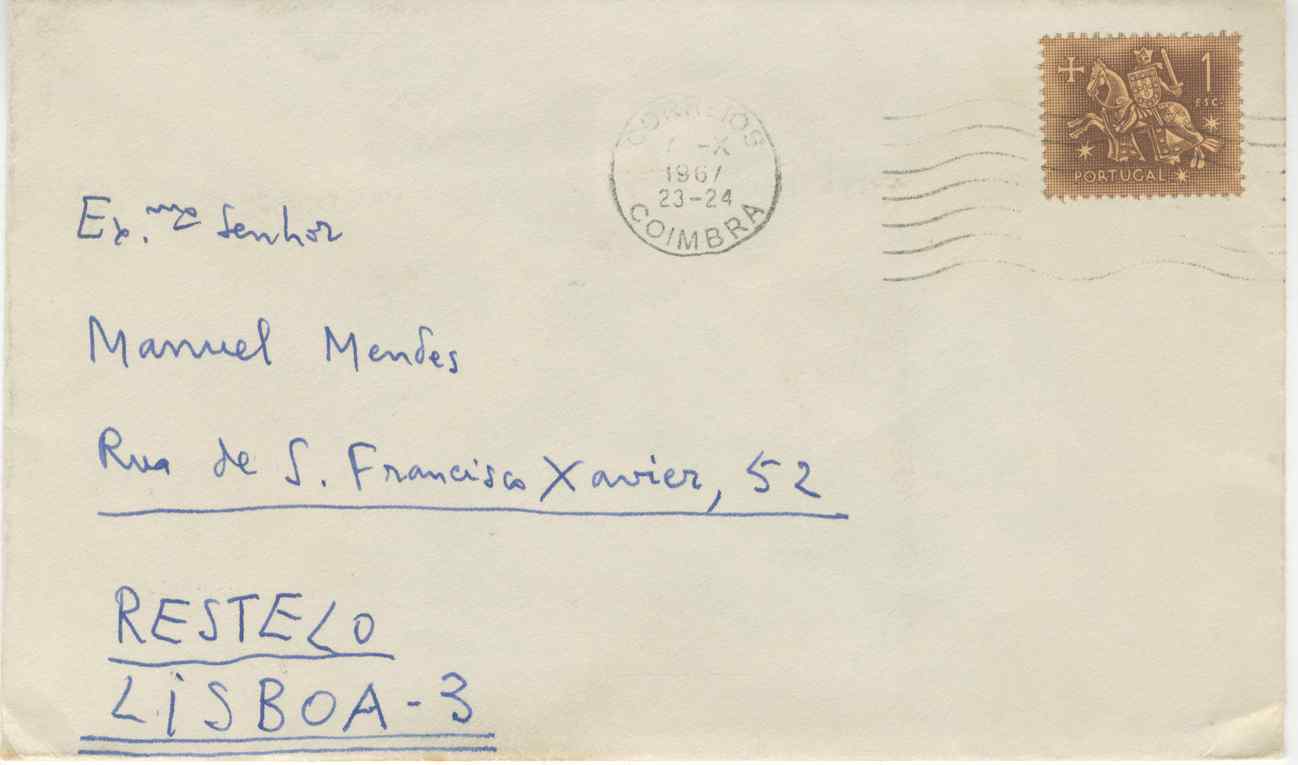 1
ESC.
PORTUGAL
CORREIOS
-X
1967
23-24
COIMBRA
Ex.mo Senhor
Manuel Mendes
Rua de S. Francisco Xavier, 52
RESTELO
LISBOA-3